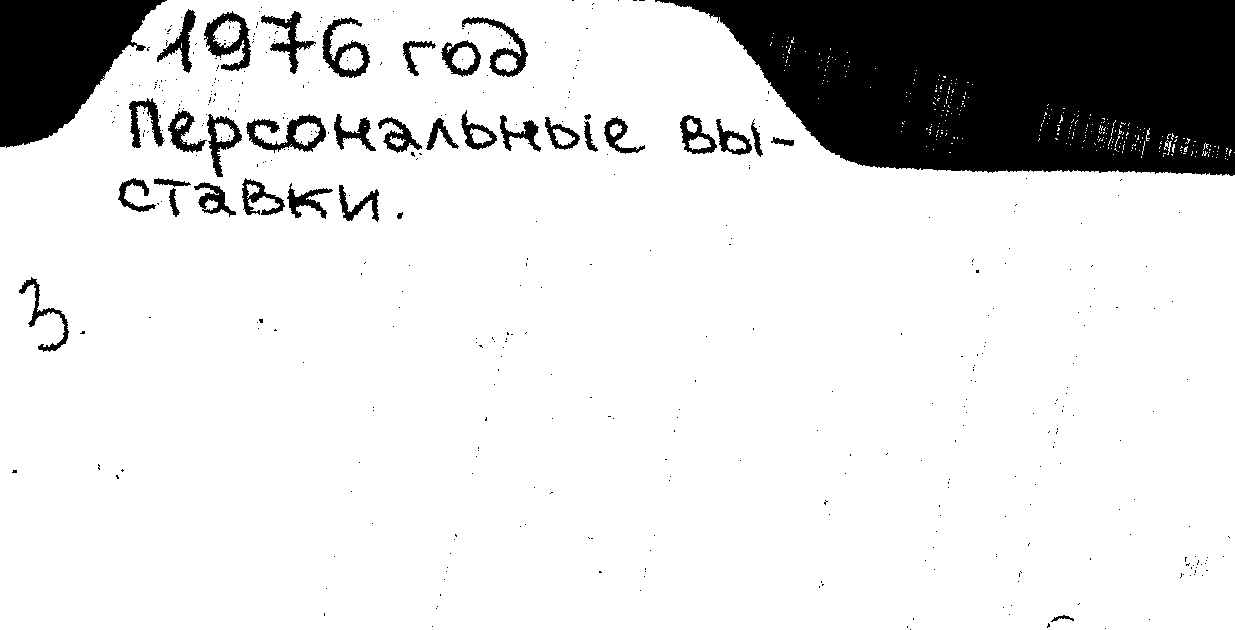 1976 год
Персональные вы-
ставки.
З